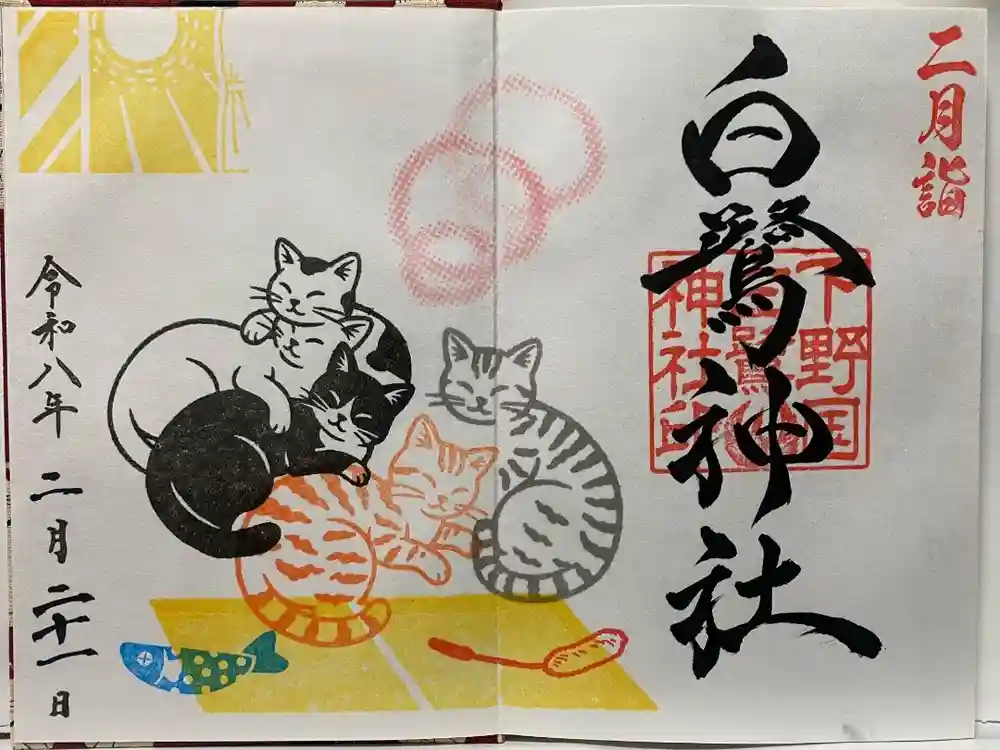 二月詣
白鷺神社
下野国
白鷺
神社印
令和八年二月二十一日